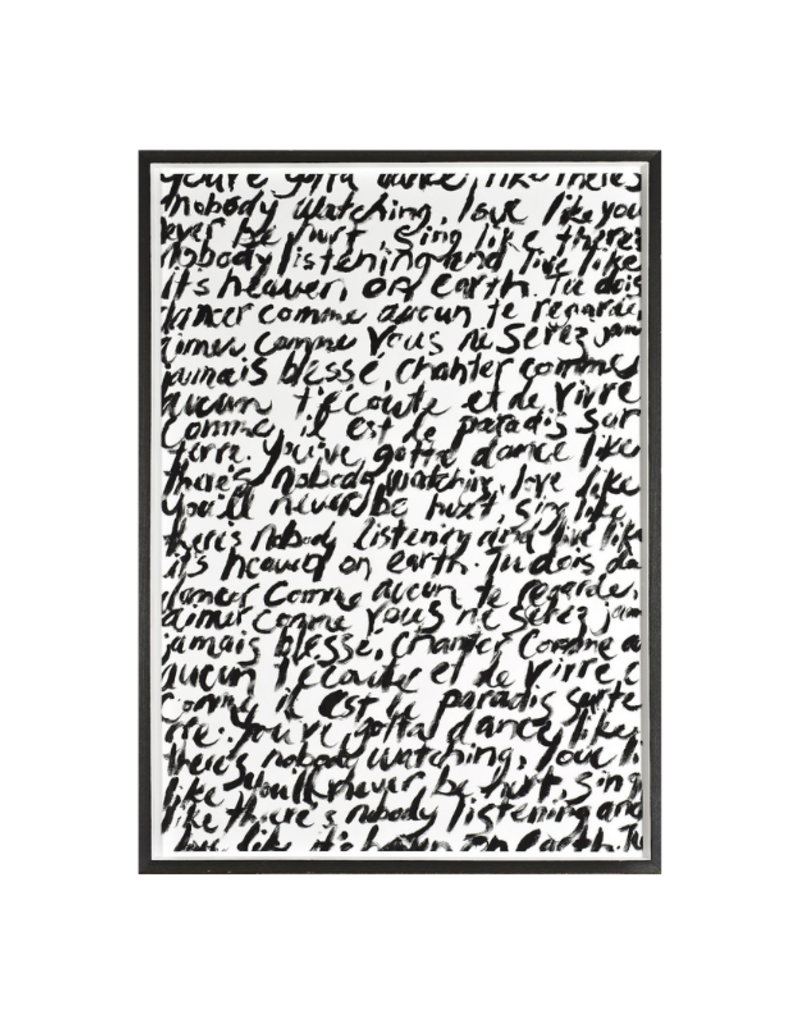 you're gotta dance like there's
nobody watching, love like you
ever be hurt, sing like there's
nobody listening and live like
it's heaven on earth. Tu dois
dancer comme aucun te regarde,
aimer comme vous ne serez jam
jamais blessé, chanter comme
aucun t'écoute et de vivre
comme il est le paradis sur
terre. You've gotta dance like
there's nobody watching, love like
you'll never be hurt, sing like
there's nobody listening and live like
it's heaven on earth. Tu dois da
dancer comme aucun te regarde,
aimer comme vous ne serez jam
jamais blessé, chanter comme a
aucun t'écoute et de vivre c
comme il est le paradis sur te
rre. You've gotta dance like
there's nobody watching, love li
like you'll never be hurt, sing
like there's nobody listening and
like it's on earth. Tu